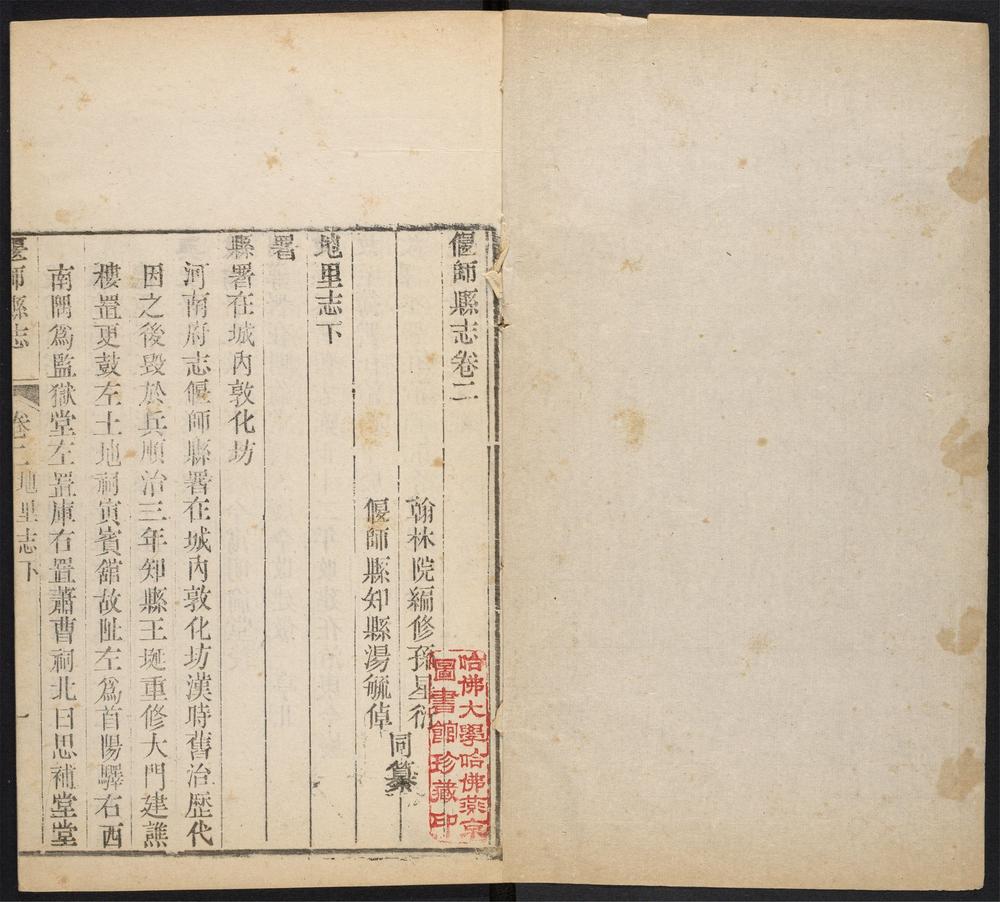 偃師縣志卷二
翰林院編修孫星衍
偃師縣知縣湯毓倬
同纂
地里志下
署
縣署在城內敦化坊
河南府志偃師縣署在城內敦化坊漢時舊治歷代
因之後毀於兵順治三年知縣王埏重修大門建譙
樓置更鼓左土地祠寅賓館故阯左爲首陽驛右西
南隅爲監獄堂左置庫右置蕭曹祠北曰思補堂堂
偃師縣志
卷二地里志下
一
哈佛大學哈佛燕京
圖書館珍藏印